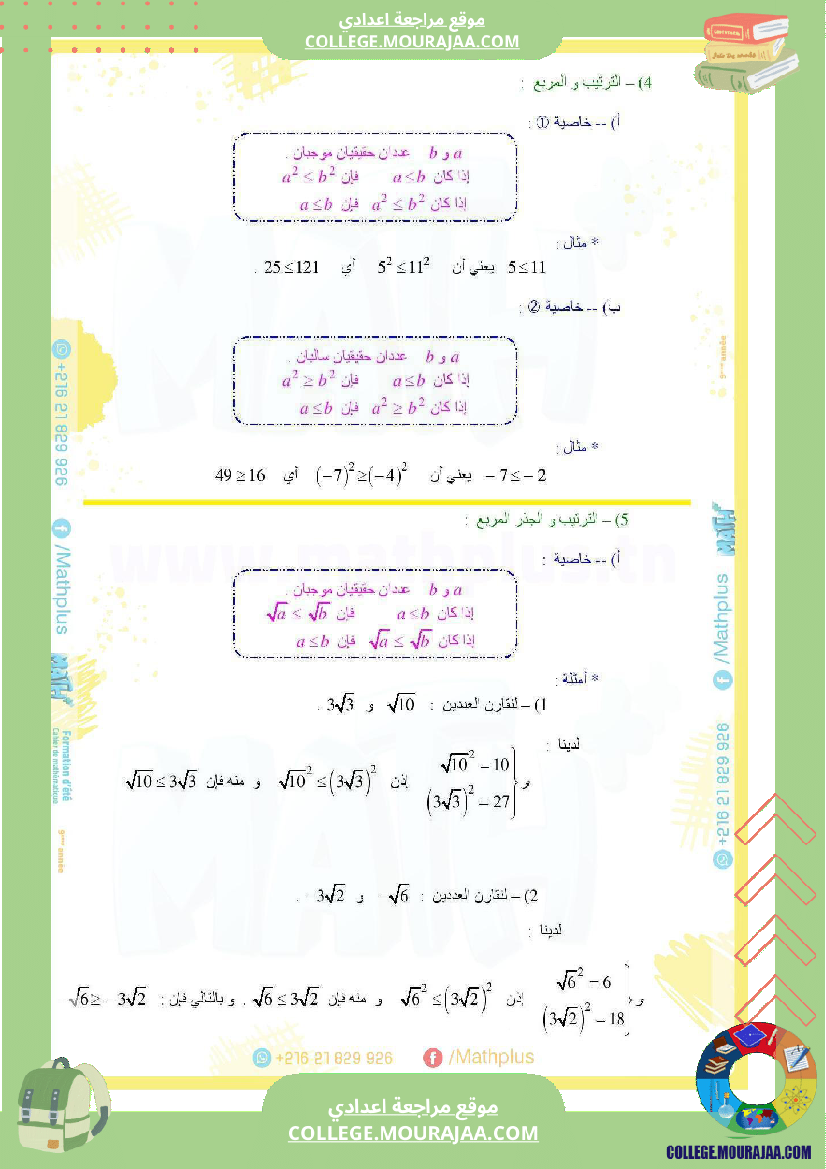 موقع مراجعة اعدادي
COLLEGE.MOURAJAA.COM
4) – الترتيب و المربع :
أ) -- خاصية ① :
a و b عددان حقيقيان موجبان .
إذا كان a ≤ b فإن a² ≤ b²
إذا كان a² ≤ b² فإن a ≤ b
* مثال :
5 ≤ 11 يعني أن 5² ≤ 11² أي 25 ≤ 121 .
ب) -- خاصية ② :
a و b عددان حقيقيان سالبان .
إذا كان a ≤ b فإن a² ≥ b²
إذا كان a² ≥ b² فإن a ≤ b
* مثال :
– 7 ≤ – 2 يعني أن (–7)² ≥ (–4)² أي 49 ≥ 16
5) – الترتيب و الجذر المربع :
أ) -- خاصية :
a و b عددان حقيقيان موجبان .
إذا كان a ≤ b فإن √a ≤ √b
إذا كان √a ≤ √b فإن a ≤ b
* أمثلة :
1) – لنقارن العددين : √10 و 3√3 .
لدينا :
√10² = 10
و (3√3)² = 27
إذن √10² ≤ (3√3)² و منه فإن √10 ≤ 3√3
2) – لنقارن العددين : √6 و 3√2 .
لدينا :
√6² = 6
و (3√2)² = 18
إذن √6² ≤ (3√2)² و منه فإن √6 ≤ 3√2 . و بالتالي فإن : √6 ≥ 3√2
+216 21 829 926
/Mathplus
MATH
Formation d'été
Cahier de mathématiques
9ème année
9ème année
MATH
/Mathplus
+216 21 829 926
www.mathplus.tn
+216 21 829 926 /Mathplus
موقع مراجعة اعدادي
COLLEGE.MOURAJAA.COM
COLLEGE.MOURAJAA.COM